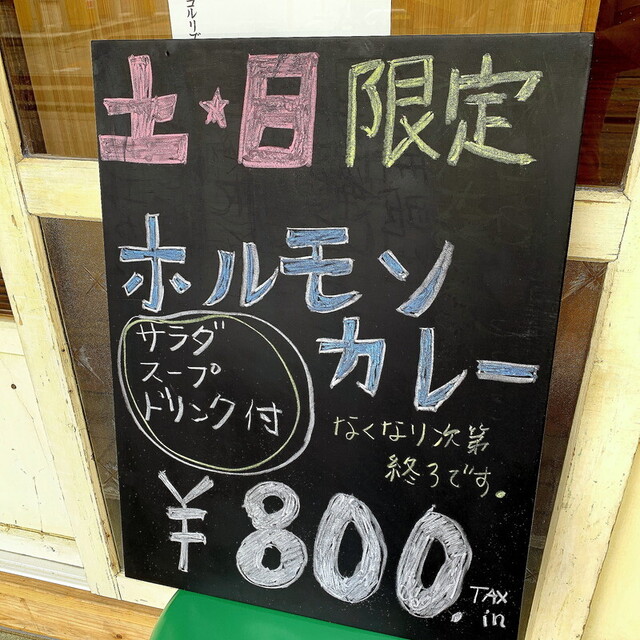 ゴルリズ
土★日 限定
ホルモン
カレー
サラダ
スープ
ドリンク付
なくなり次第
終了です。
￥800.
TAX
in